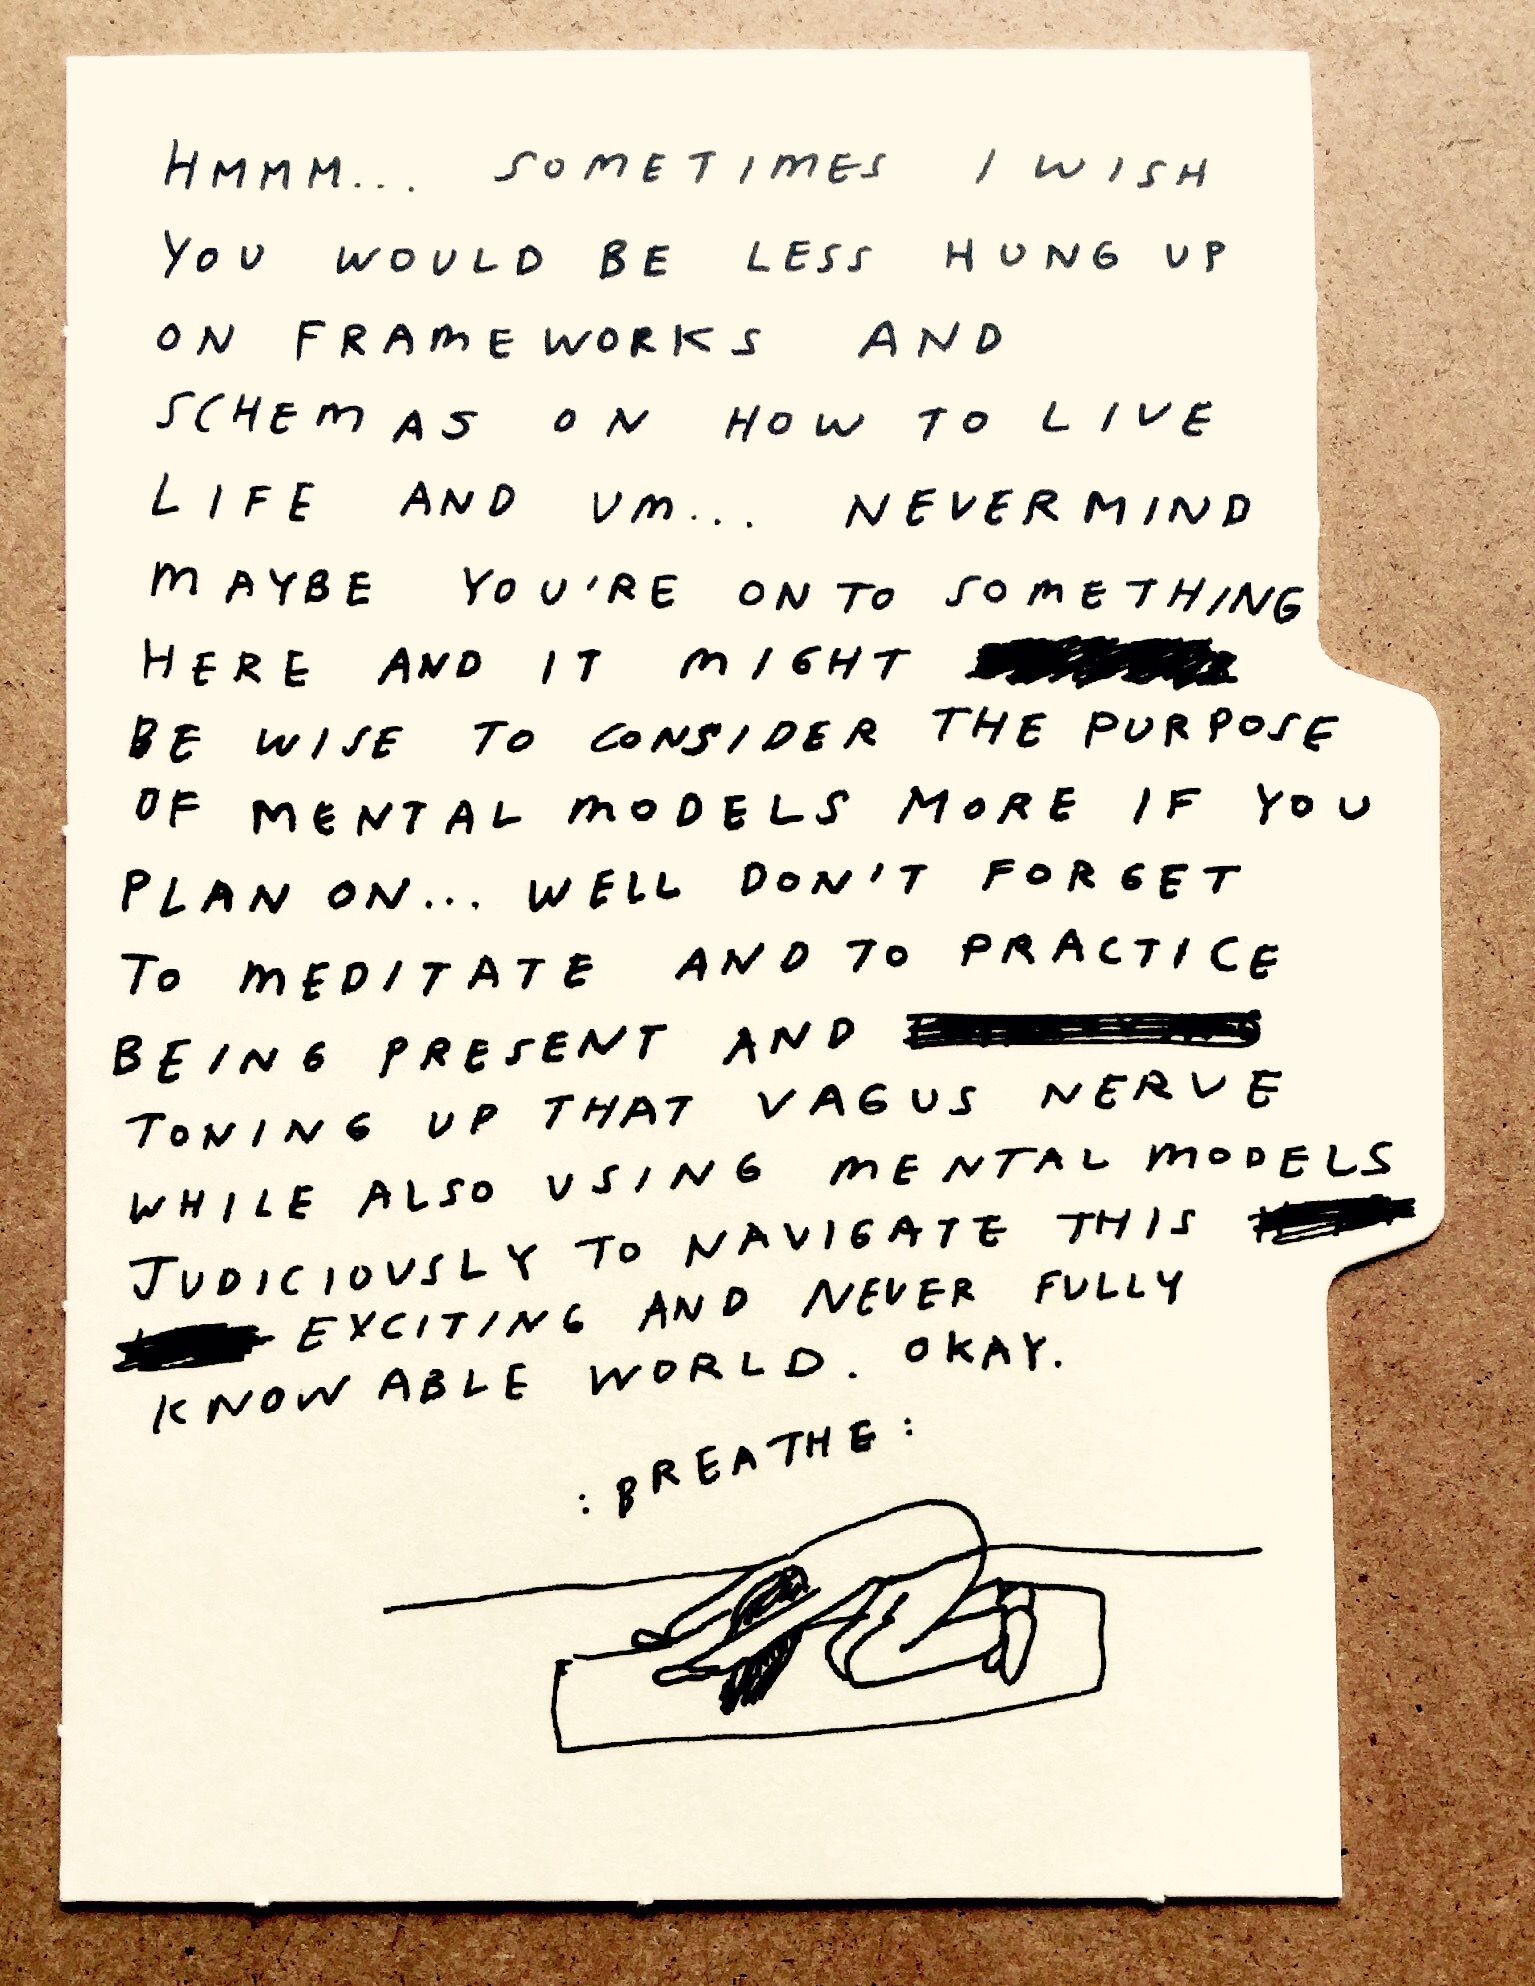 HMMM... SOMETIMES I WISH
YOU WOULD BE LESS HUNG UP
ON FRAMEWORKS AND
SCHEMAS ON HOW TO LIVE
LIFE AND UM... NEVERMIND
MAYBE YOU'RE ONTO SOMETHING
HERE AND IT MIGHT
BE WISE TO CONSIDER THE PURPOSE
OF MENTAL MODELS MORE IF YOU
PLAN ON... WELL DON'T FORGET
TO MEDITATE AND TO PRACTICE
BEING PRESENT AND
TONING UP THAT VAGUS NERVE
WHILE ALSO USING MENTAL MODELS
JUDICIOUSLY TO NAVIGATE THIS
EXCITING AND NEVER FULLY
KNOWABLE WORLD. OKAY.
:BREATHE: